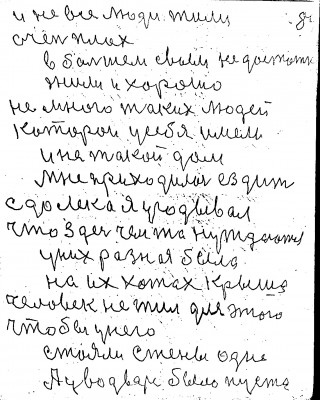 и не все люди жили
счетплах
в болшем своём недостатк
жили и хорошо
не много таких людей
которои усебя имели
и не такой дом
мне приходилос ездит
сдолека я угодывал
что здес чемта нуждаютса
у них разная была
на их хотах крыша
человек не жил для этого
чтобы у него
стояли стены одне
А у водваре было пуста